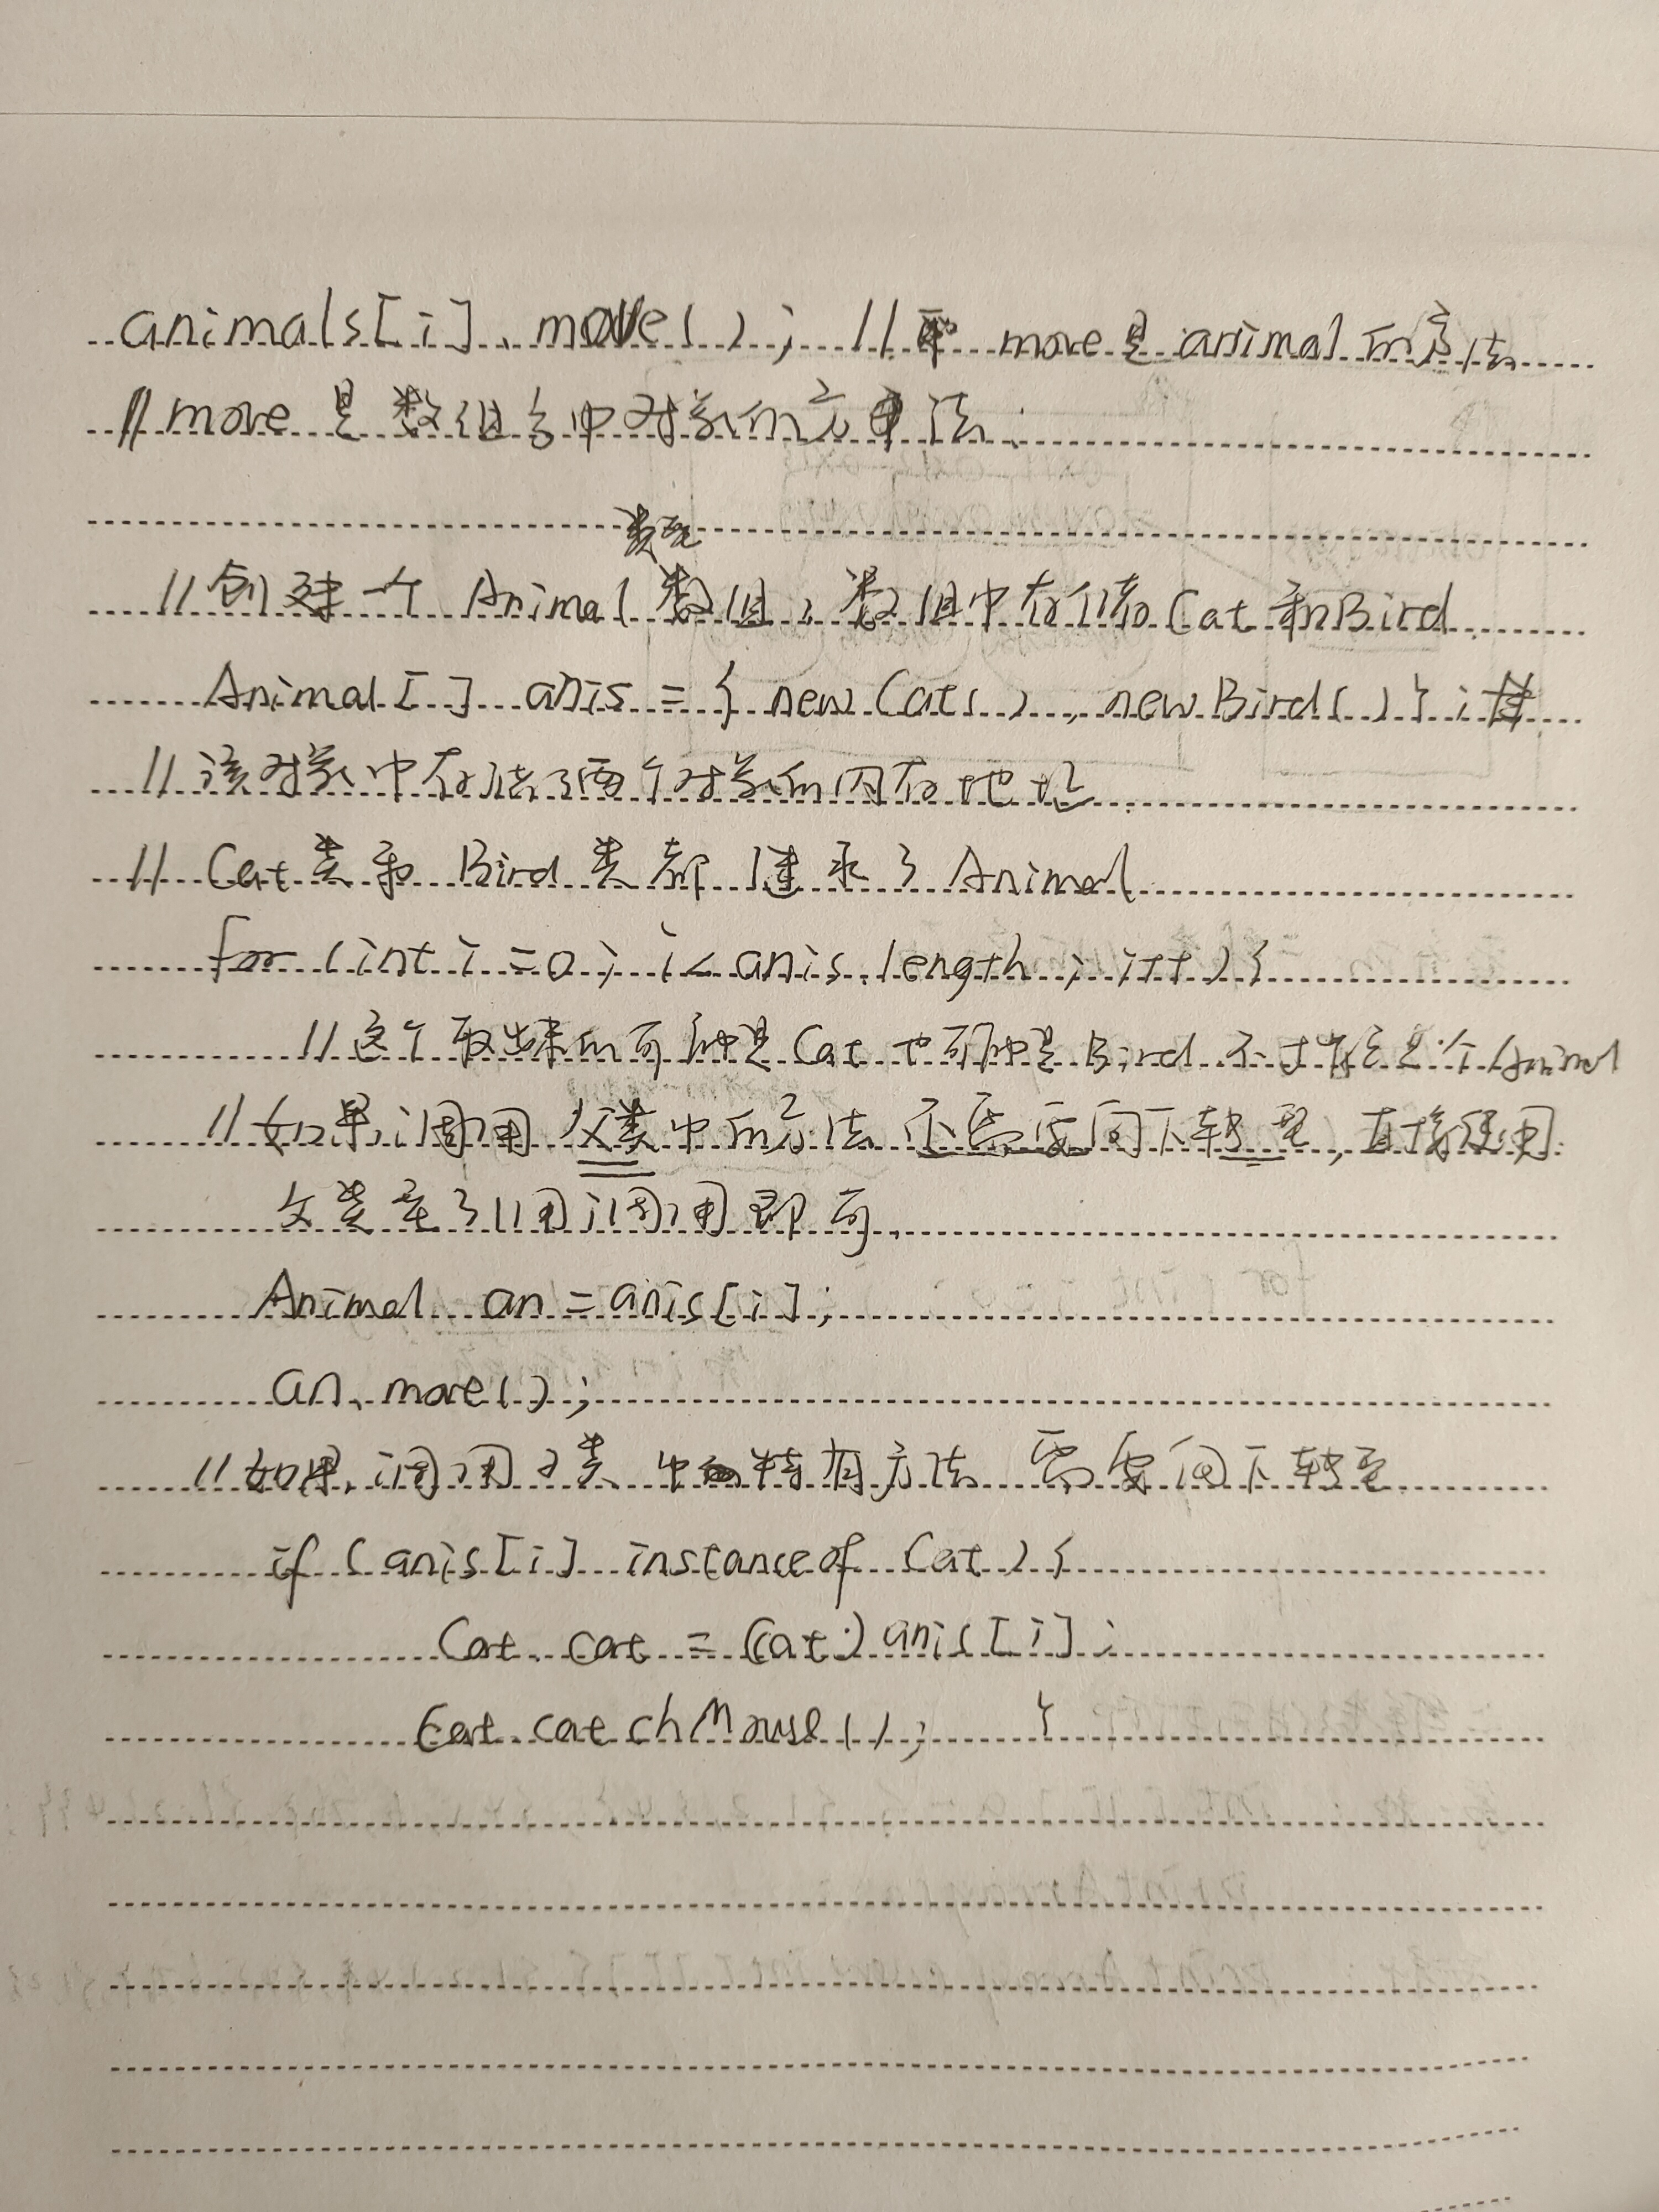 animals[i].move(); // move是animal的方法
// move 是数组当中对象的方法.
类型
//创建一个 Animal 数组, 数组中存储 Cat 和Bird
Animal[] anis = { new Cat(), new Bird()};
// 该对象中存储了两个对象的内存地址.
// Cat类和 Bird类都继承了Animal
for (int i = 0; i < anis.length; i++) {
// 这个取出来的可能是Cat 也可能是Bird 不过肯定是个Animal
//如果调用父类中的方法 不需要向下转型, 直接使用
父类型引用调用即可.
Animal an = anis[i];
an.move();
//如果调用子类中特有方法 需要向下转型
if (anis[i] instanceof Cat) {
Cat cat = (Cat) anis[i];
Cat.catchMouse(); }